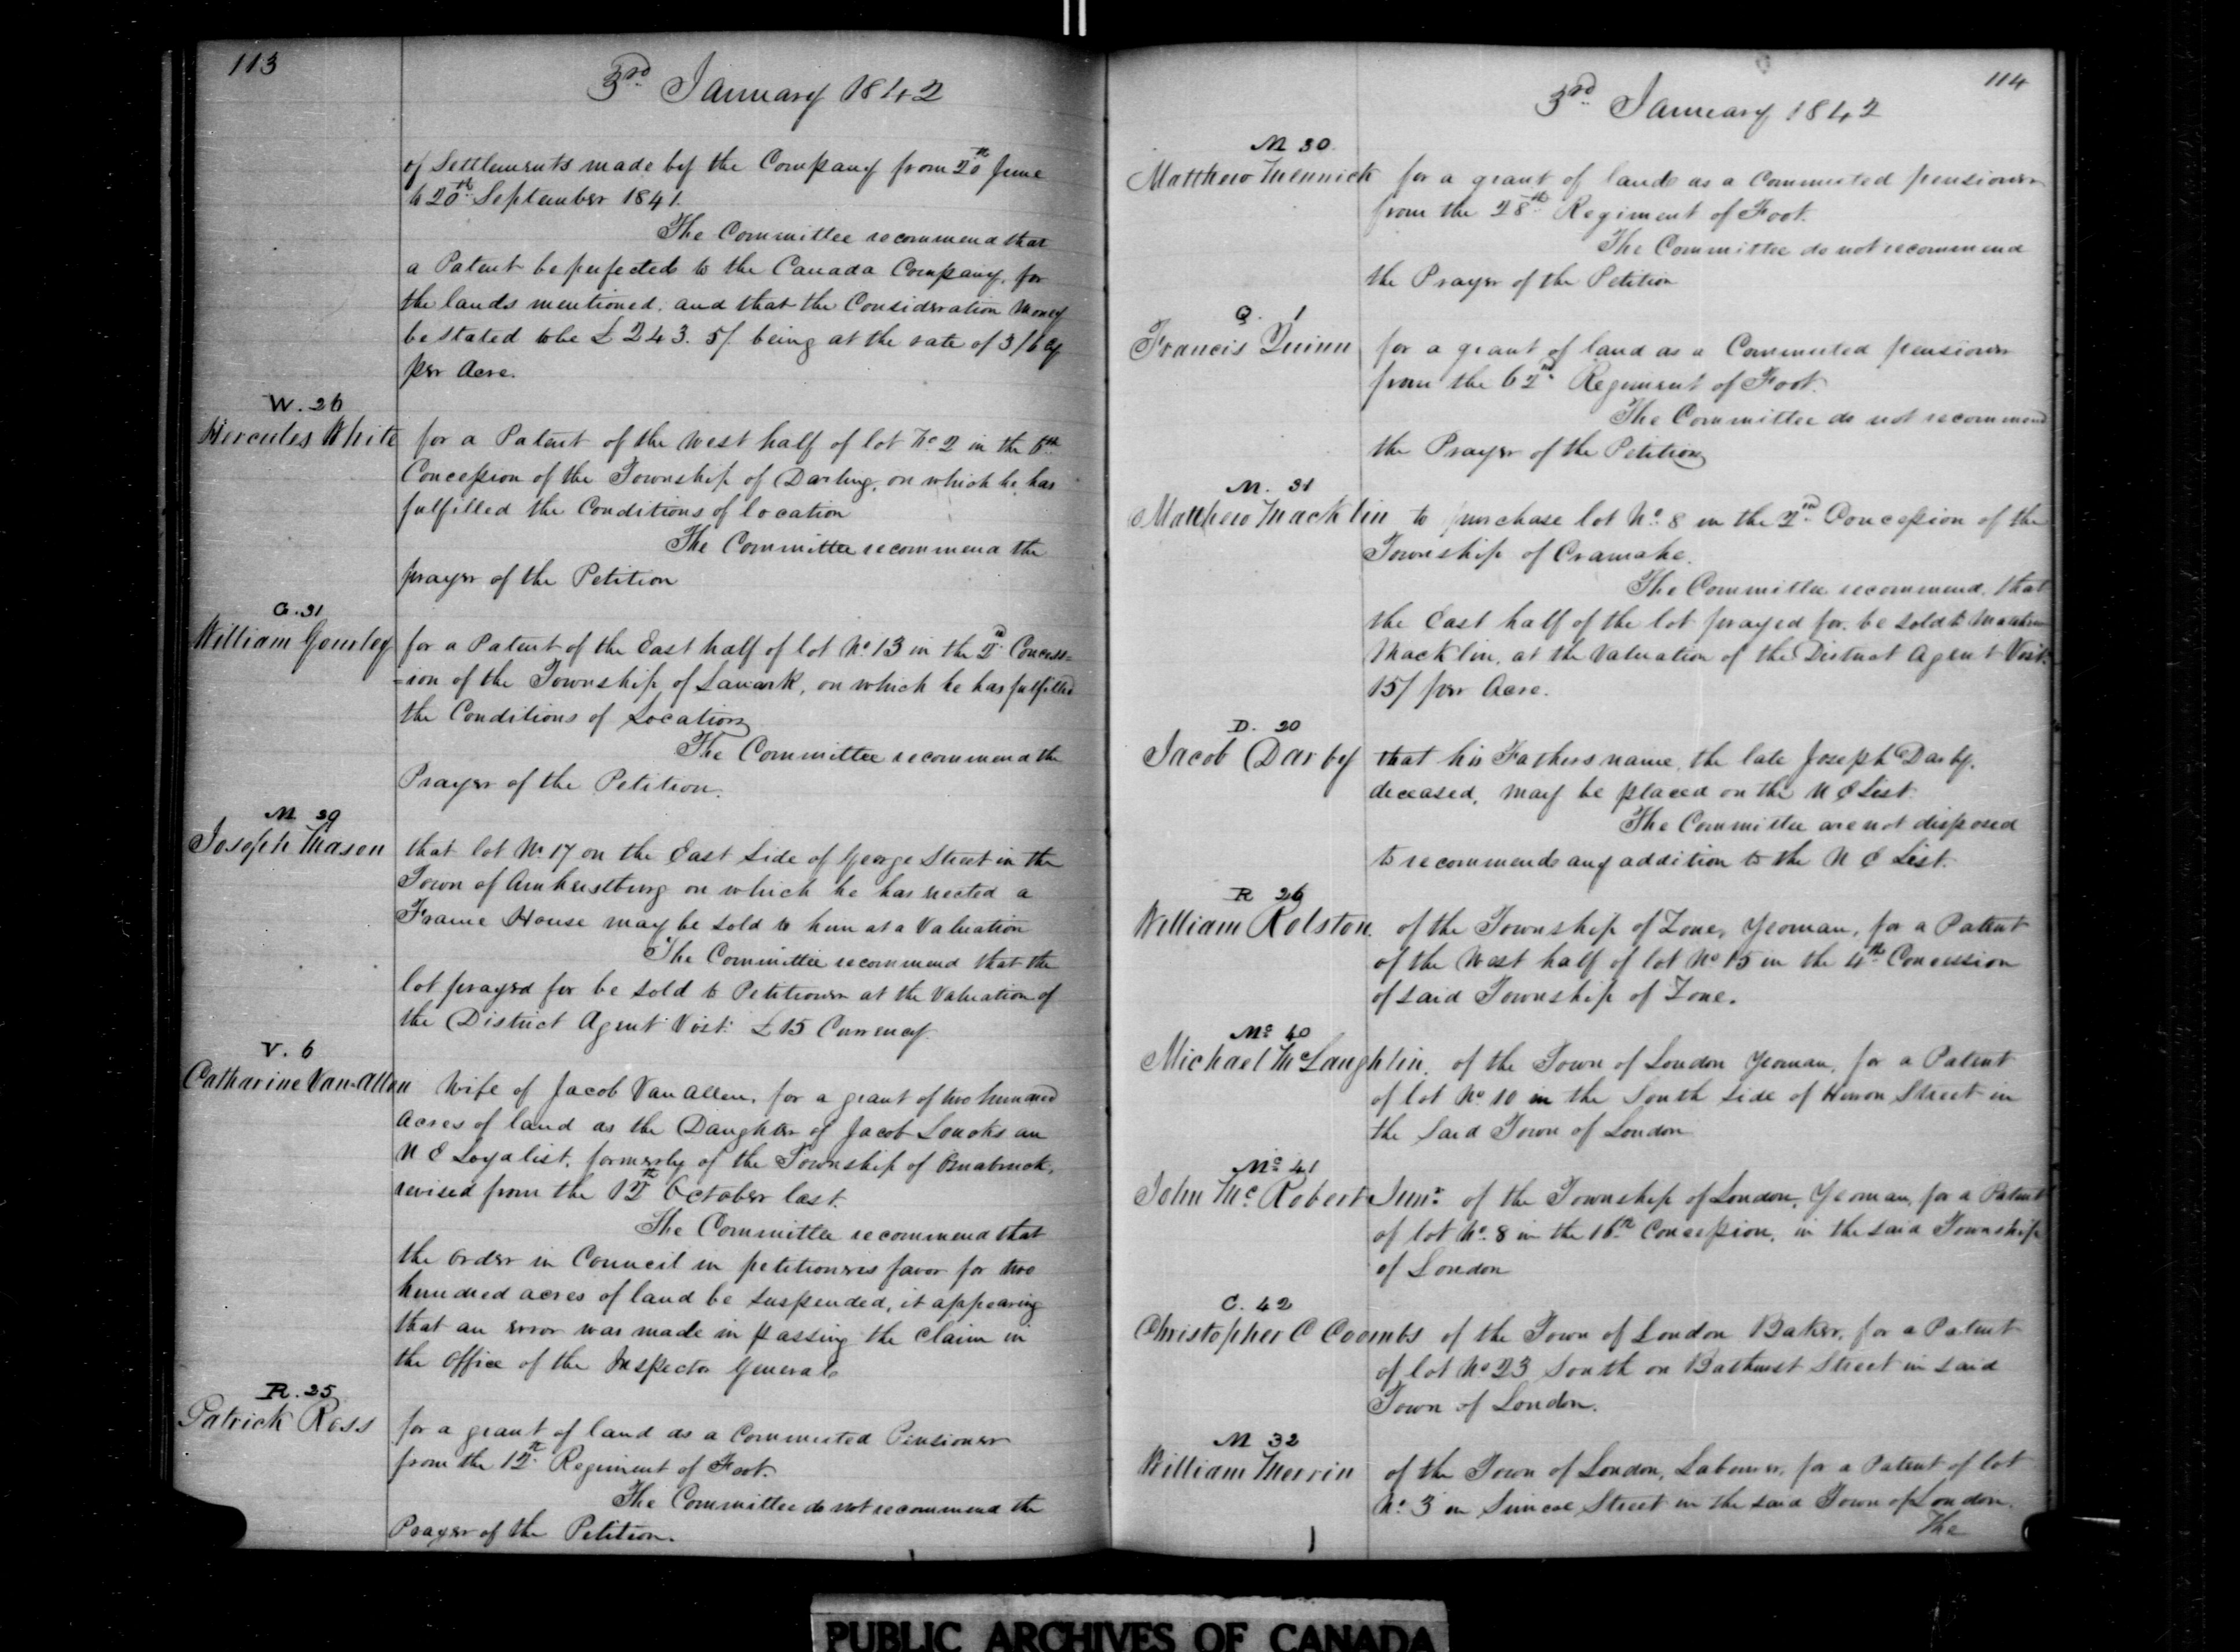 113
3rd January 1842
of Settlements made by the Company from 20th June
to 20th September 1841.
The Committee recommend that
a Patent be perfected to the Canada Company, for
the lands mentioned, and that the Consideration Money
be stated to be £243. 5/. being at the rate of 3/6 Cy
per Acre.
W. 26
Hercules White for a Patent of the West half of lot No 2 in the 6th
Concession of the Township of Darling, on which he has
fulfilled the Conditions of location
The Committee recommend the
prayer of the Petition
G. 31
William Gourley for a Patent of the East half of lot No. 13 in the 2d. Concess=
=ion of the Township of Lanark, on which he has fulfilled
the Conditions of Location
The Committee recommend the
Prayer of the Petition.
M 29
Joseph Mason that lot No. 17 on the East Side of George Street in the
Town of Amherstburg on which he has erected a
Frame House may be sold to him at a Valuation
The Committee recommend that the
lot prayed for be sold to Petitioner at the Valuation of
the District Agent Vizt. £15 Currency
V. 6
Catharine Van Allen Wife of Jacob Van Allen, for a grant of two hundred
Acres of land as the Daughter of Jacob Loucks an
U E Loyalist, formerly of the Township of Osnabruck,
revised from the 12th October last.
The Committee recommend that
the order in Council in petitioners favor for two
hundred acres of land be suspended, it appearing
that an error was made in passing the claim in
the office of the Inspector General
R. 25
Patrick Ross for a grant of land as a Commuted Pensioner
from the 12th Regiment of Foot.
The Committee do not recommend the
Prayer of the Petition.
114
3rd January 1842
M 30
Matthew Minnick for a grant of land as a Commuted pensioner
from the 28th Regiment of Foot.
The Committee do not recommend
the Prayer of the Petition
Q. 1
Francis Quinn for a grant of land as a Commuted pensioner
from the 62nd Regiment of Foot.
The Committee do not recommend
the Prayer of the Petition
M. 31
Matthew Macklin to purchase lot No. 8 in the 2nd Concession of the
Township of Cramahe.
The Committee recommend, that
the East half of the lot prayed for, be sold to Matthew
Macklin, at the Valuation of the District Agent Vizt.
15/ per Acre.
D. 20
Jacob Darby that his Fathers name, the late Joseph Darby,
deceased, may be placed on the U E List.
The Committee are not disposed
to recommend any addition to the U E List.
R 26
William Rolston of the Township of Zone, Yeoman, for a Patent
of the West half of lot No 15 in the 4th Concession
of said Township of Zone.
Mc 40
Michael McLaughlin, of the Town of London Yeoman, for a Patent
of lot No. 10 in the South side of Horton Street in
the said Town of London
Mc 41
John McRobert Junr. of the Township of London, Yeoman, for a Patent
of lot No. 8 in the 16th Concession, in the said Township
of London
C. 42
Christopher C Coombs of the Town of London Baker, for a Patent
of lot No 23 South on Bathurst Street in said
Town of London.
M 32
William Merrin of the Town of London, Labourer, for a Patent of lot
No. 3 on Simcoe Street in the said Town of London.
The
PUBLIC ARCHIVES OF CANADA